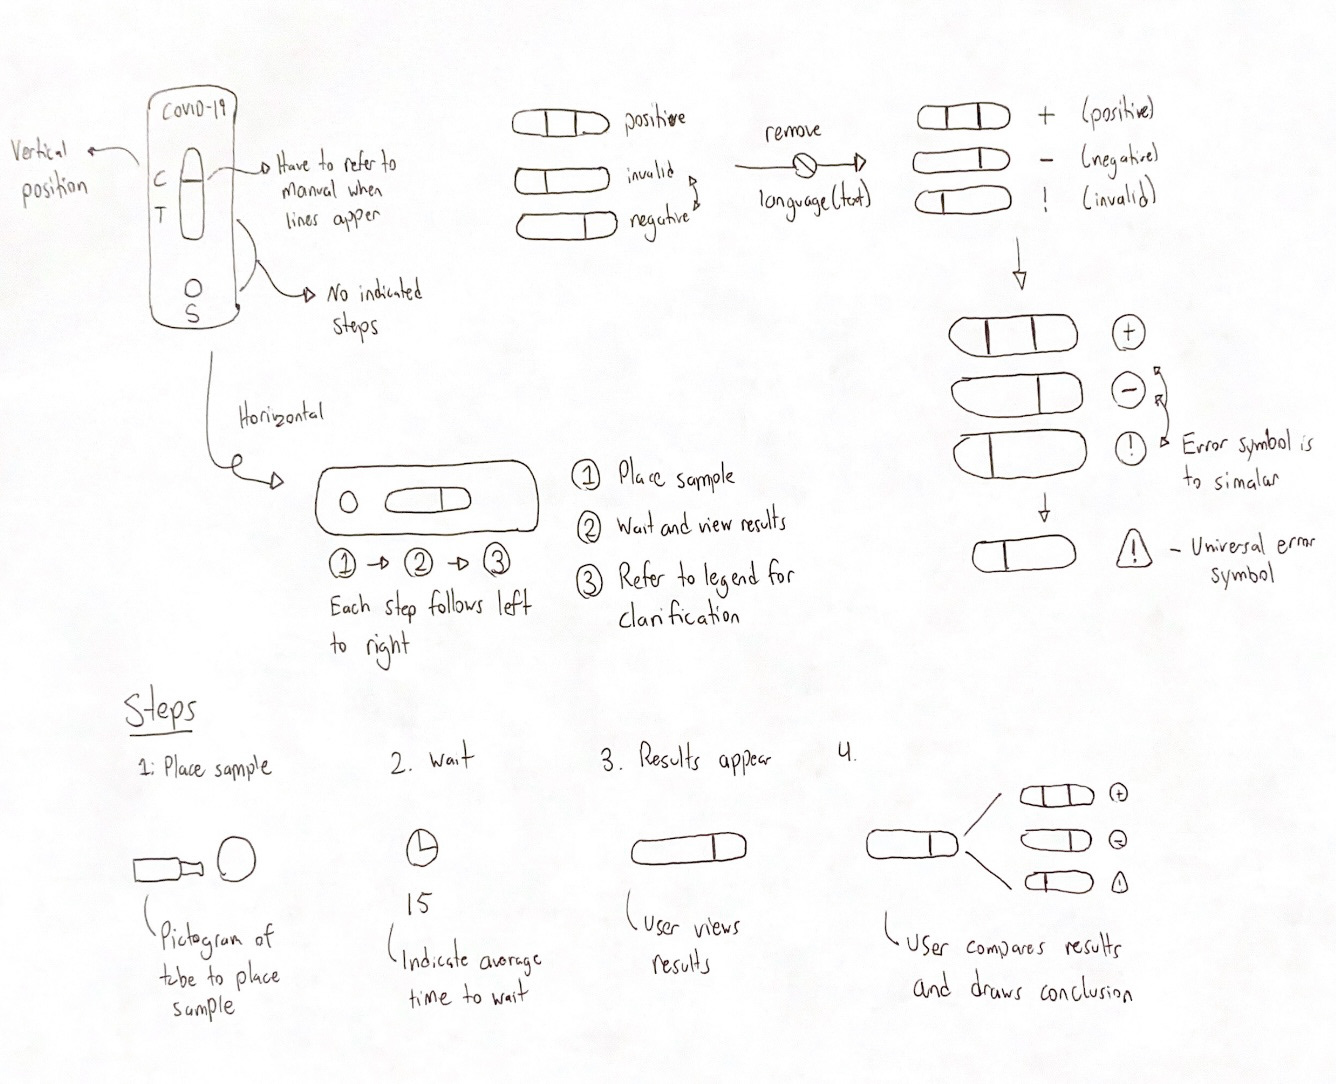 COVID-19
Vertical
position
C
T
S
Have to refer to
manual when
lines apper
No indicated
steps
positive
invalid
negative
remove
language(text)
+ (positive)
- (negative)
! (invalid)
+
-
!
Error symbol is
to simalar
! - Universal error
symbol
Horizontal
1 2 3
Each step follows left
to right
1 Place sample
2 Wait and view results
3 Refer to legend for
clarification
Steps
1: Place sample
Pictogram of
tube to place
sample
2. Wait
15
Indicate average
time to wait
3. Results appear
User views
results
4.
+
-
!
User compares results
and draws conclusion